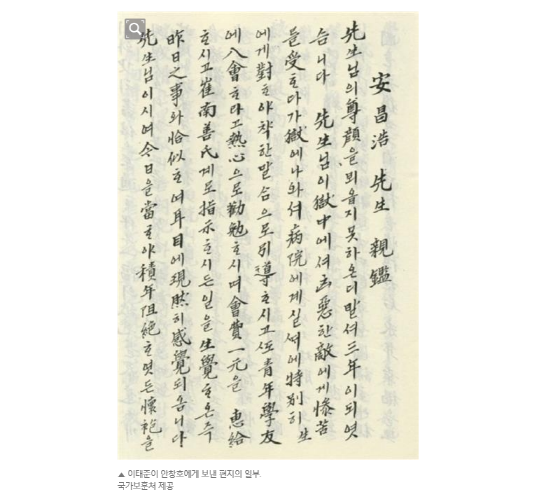 安昌浩 先生 親鑑
先生님의 尊顔을 뵈옵지 못하온 디 발셔 三年이 되엿
습니다 先生님이 獄中에셔 凶惡한 敵에게 慘苦
를 受하다가 獄에 나와셔 病院에 계실 ᄯᅢ에 特別히 生
에게 對ᄒᆞ야 챡한 말삼으로 引導ᄒᆞ시고 또 靑年學友
에 入會ᄒᆞ라고 熱心으로 勸勉ᄒᆞ시며 會費一元을 惠給
ᄒᆞ시고 崔南善氏게로 指示ᄒᆞ시든 일을 生覺ᄒᆞ온즉
昨日之事와 恰似ᄒᆞ여 耳目에 現然히 感覺되옵니다
先生님이시여 今日을 當ᄒᆞ야 積年阻絶ᄒᆞ엿든 懷抱을
▲ 이태준이 안창호에게 보낸 편지의 일부.
국가보훈처 제공